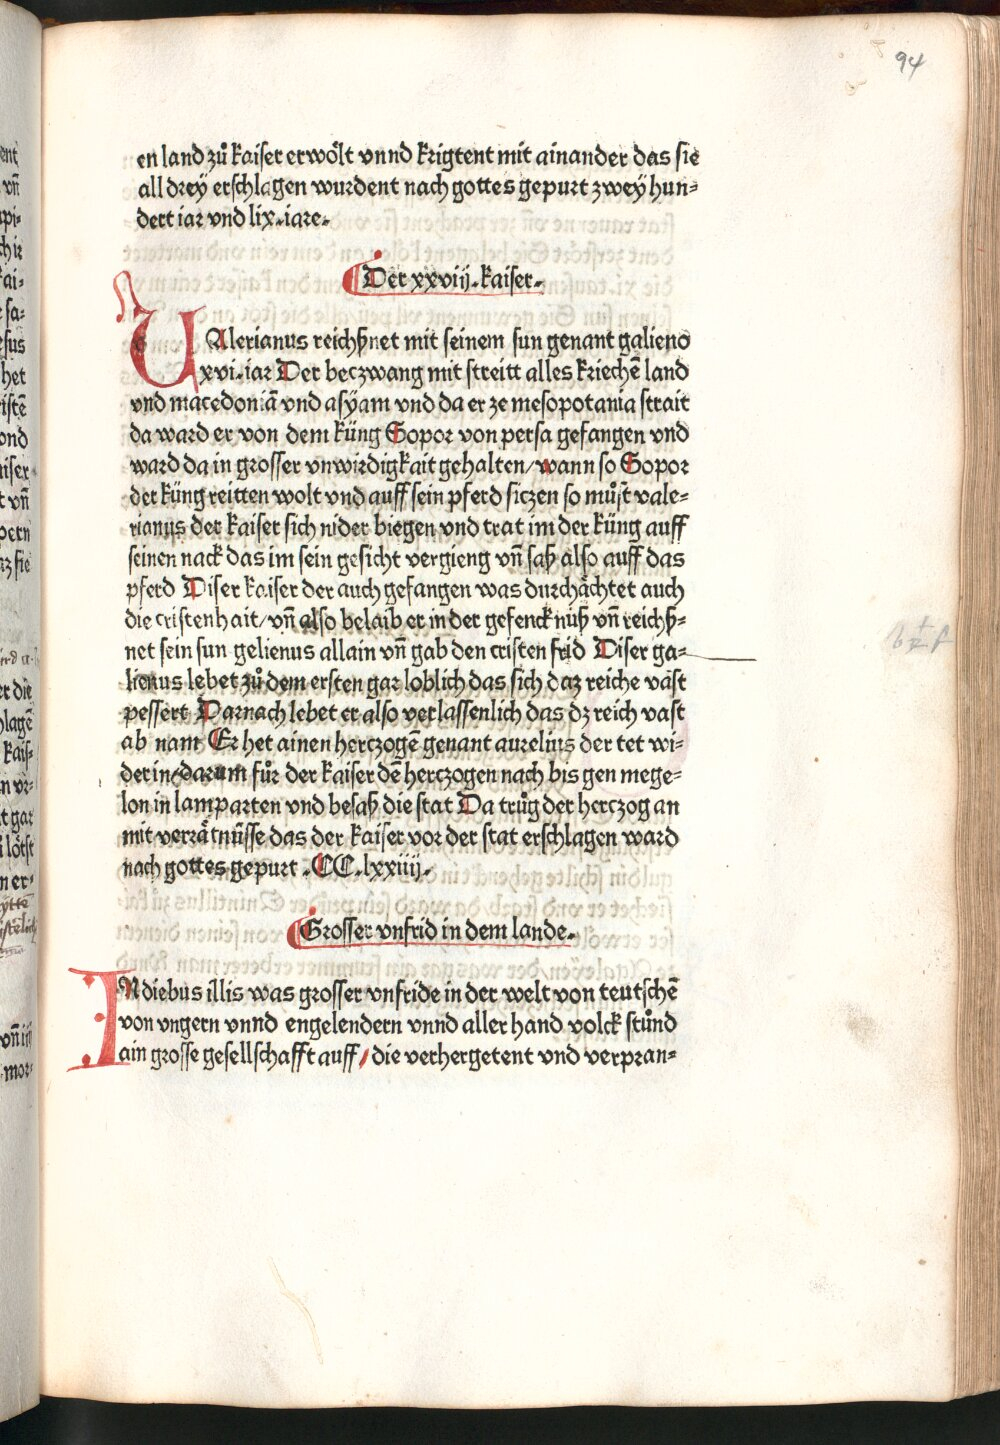 94
en land zuͦ kaiser erwoͤlt vnnd krigtent mit ainander das sie
all drey erschlagen wurdent nach gottes gepurt zweÿ hun⸗
dert iar vnd lix.iare.
Der xxviij.kaiser.
VAlerianus reichßnet mit seinem sun genant galieno
xvi.iar Der beczwang mit streitt alles kriechē land
vnd macedoniā vnd asÿam vnd da er ze mesopotania strait
da ward er von dem küng Sopor von persa gefangen vnd
ward da in grosser vnwirdigkait gehalten/wann so Sopor
der küng reitten wolt vnd auff sein pferd siczen so muͦst vale⸗
rianus der kaiser sich nider biegen vnd trat im der küng auff
seinen nack das im sein gesicht vergieng vñ saß also auff das
pferd Diser kaiser der auch gefangen was durchaͤchtet auch
die cristenhait/vñ also belaib er in der gefencknüß vñ reichß⸗
net sein sun gelienus allain vñ gab den cristen frid Diser ga⸗
lienus lebet zuͦ dem ersten gar loblich das sich daz reiche vast
pessert Darnach lebet er also verlassenlich das dz reich vast
ab nam Er het ainen herczogē genant aurelius der tet wi⸗
der in/darum fuͦr der kaiser dē herczogen nach bis gen mege⸗
lon in lamparten vnd besaß die stat Da truͦg der herczog an
mit verraͤtnüsse das der kaiser vor der stat erschlagen ward
nach gottes gepurt .CC.lxxiiij.
Grosser vnfrid in dem lande.
INdiebus illis was grosser vnfride in der welt von teutschē
von vngern vnnd engelendern vnnd aller hand volck stuͦnd
ain grosse gesellschafft auff/die verhergetent vnd verpran⸗